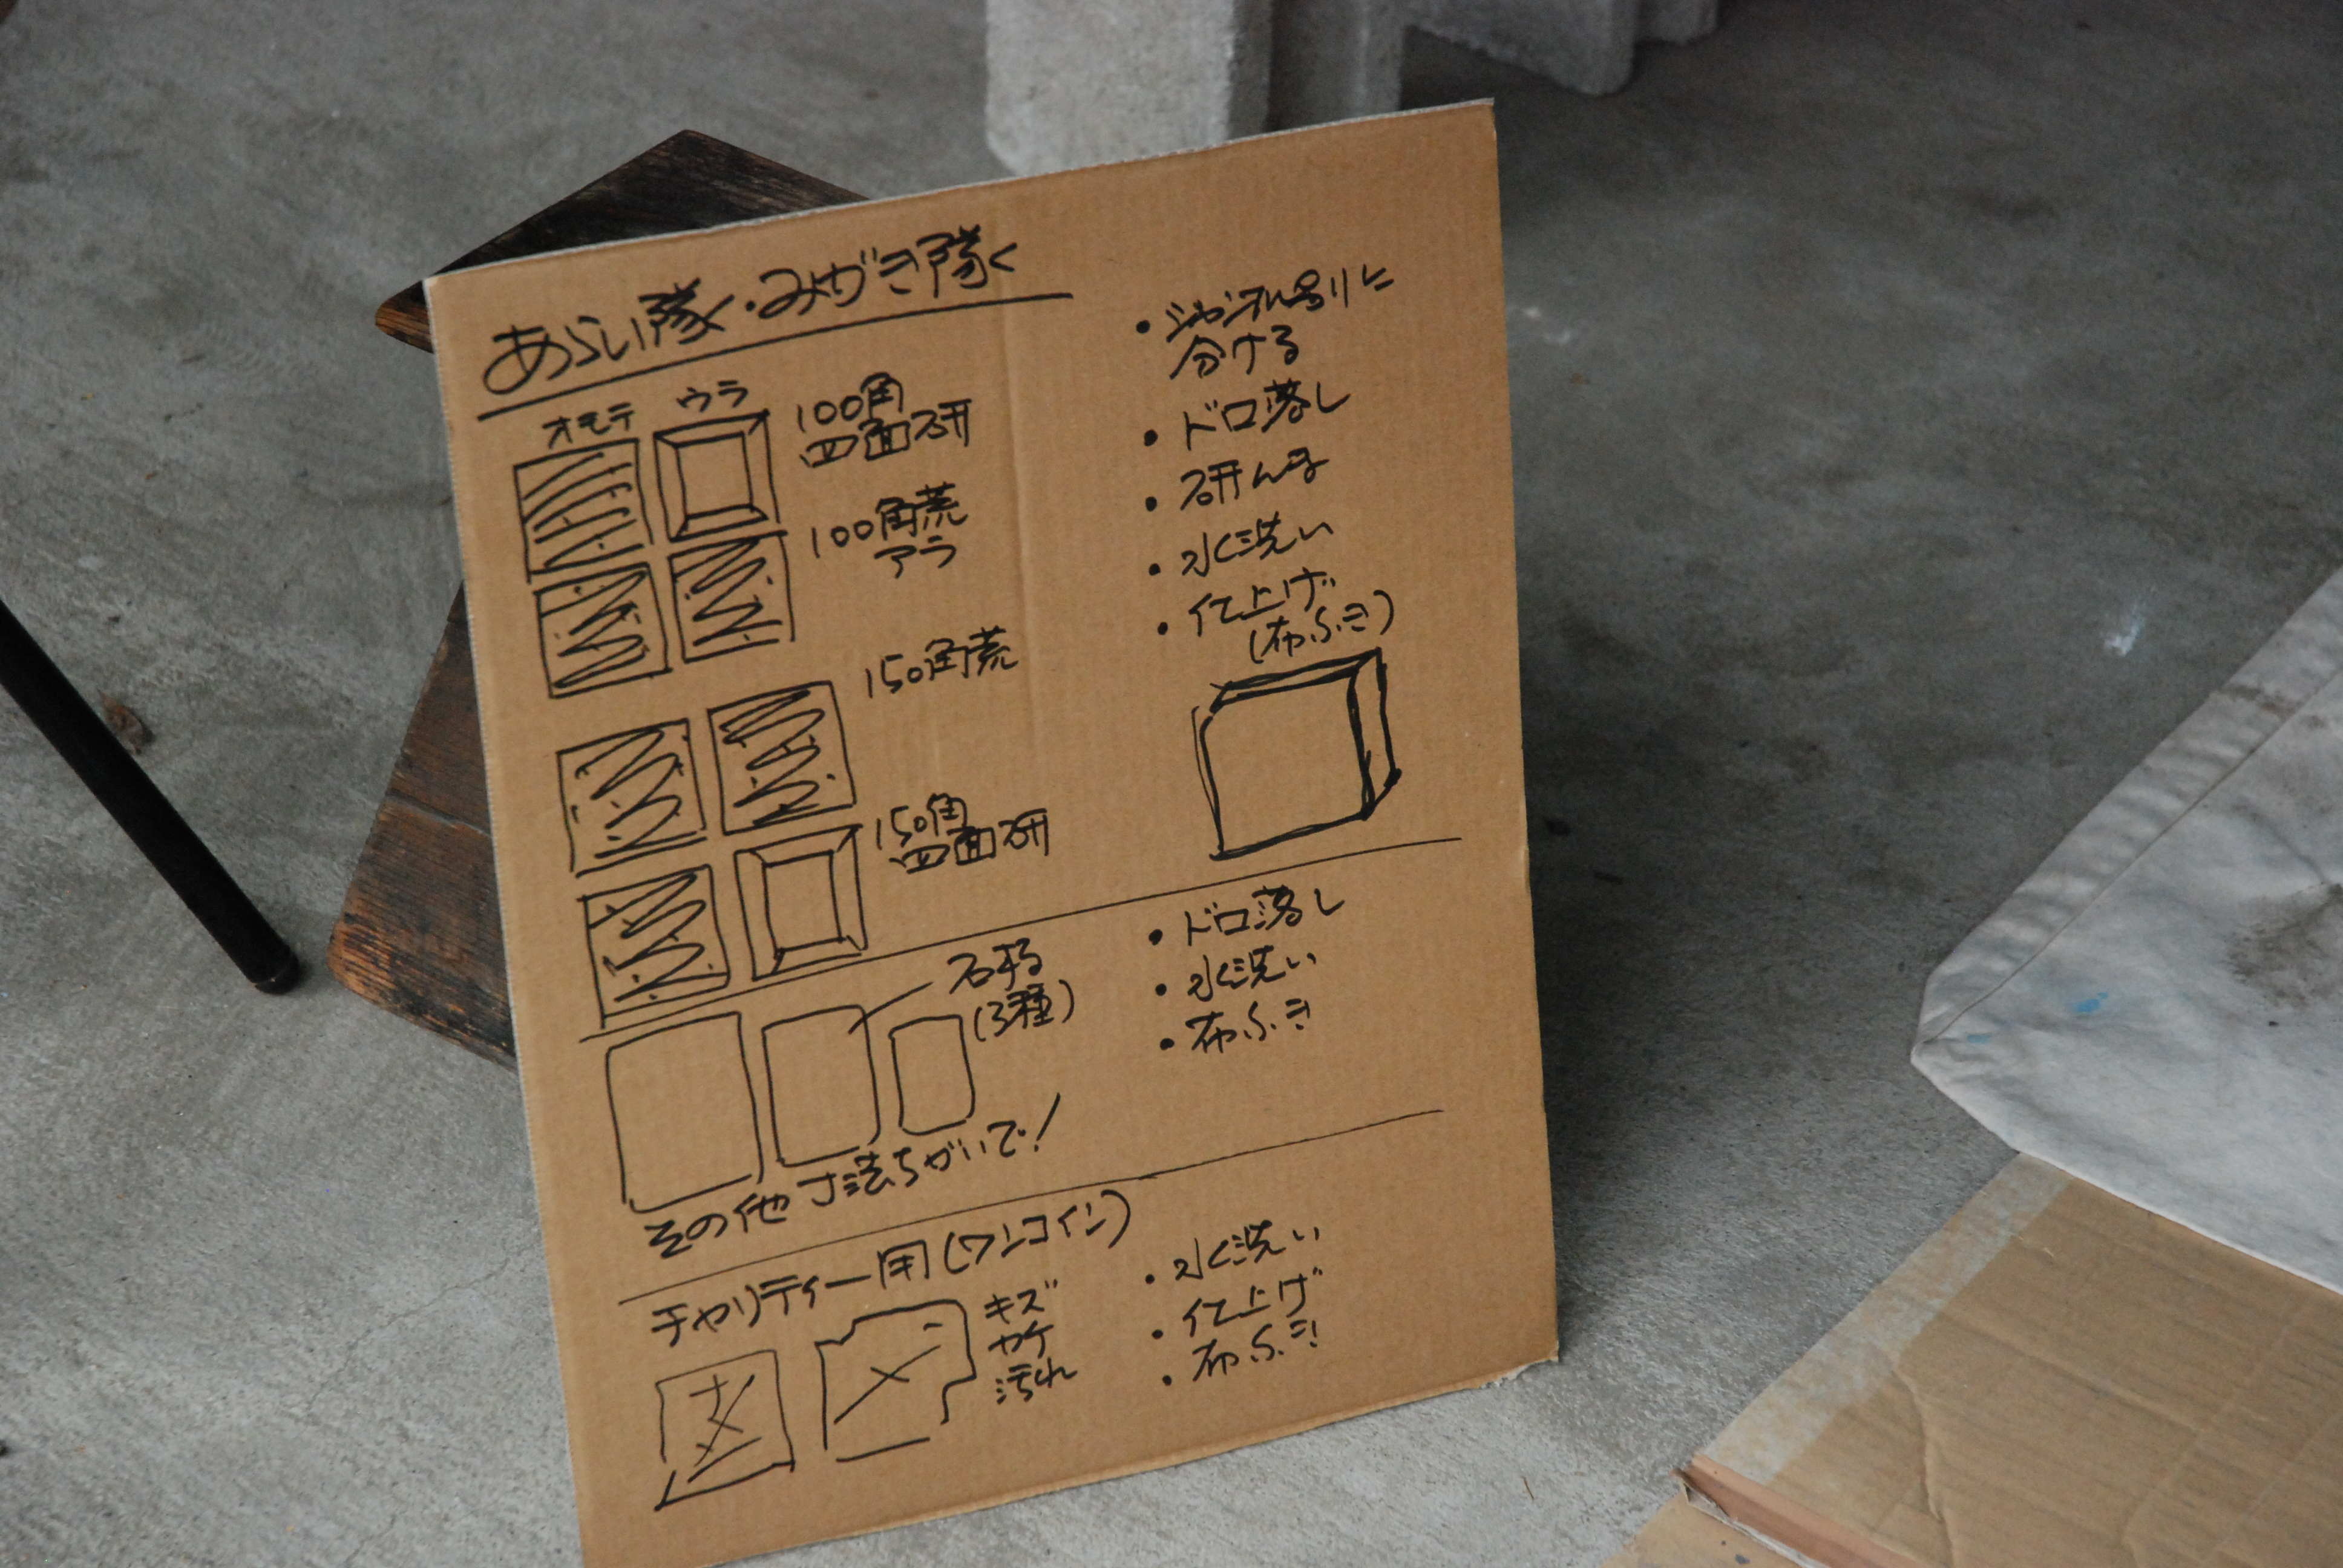 あらい隊・みがき隊
オモテ ウラ
100角
四面研
100角荒
アラ
150角荒
150角
四面研
・ジャンル別に
分ける
・ドロ落し
・研んま
・水洗い
・仕上げ
(布ふき)
石材
(3種)
その他寸法ちがいで!
・ドロ落し
・水洗い
・布ふき
チャリティー用(ワンコイン)
キズ
カケ
汚れ
・水洗い
・仕上げ
・布ふき